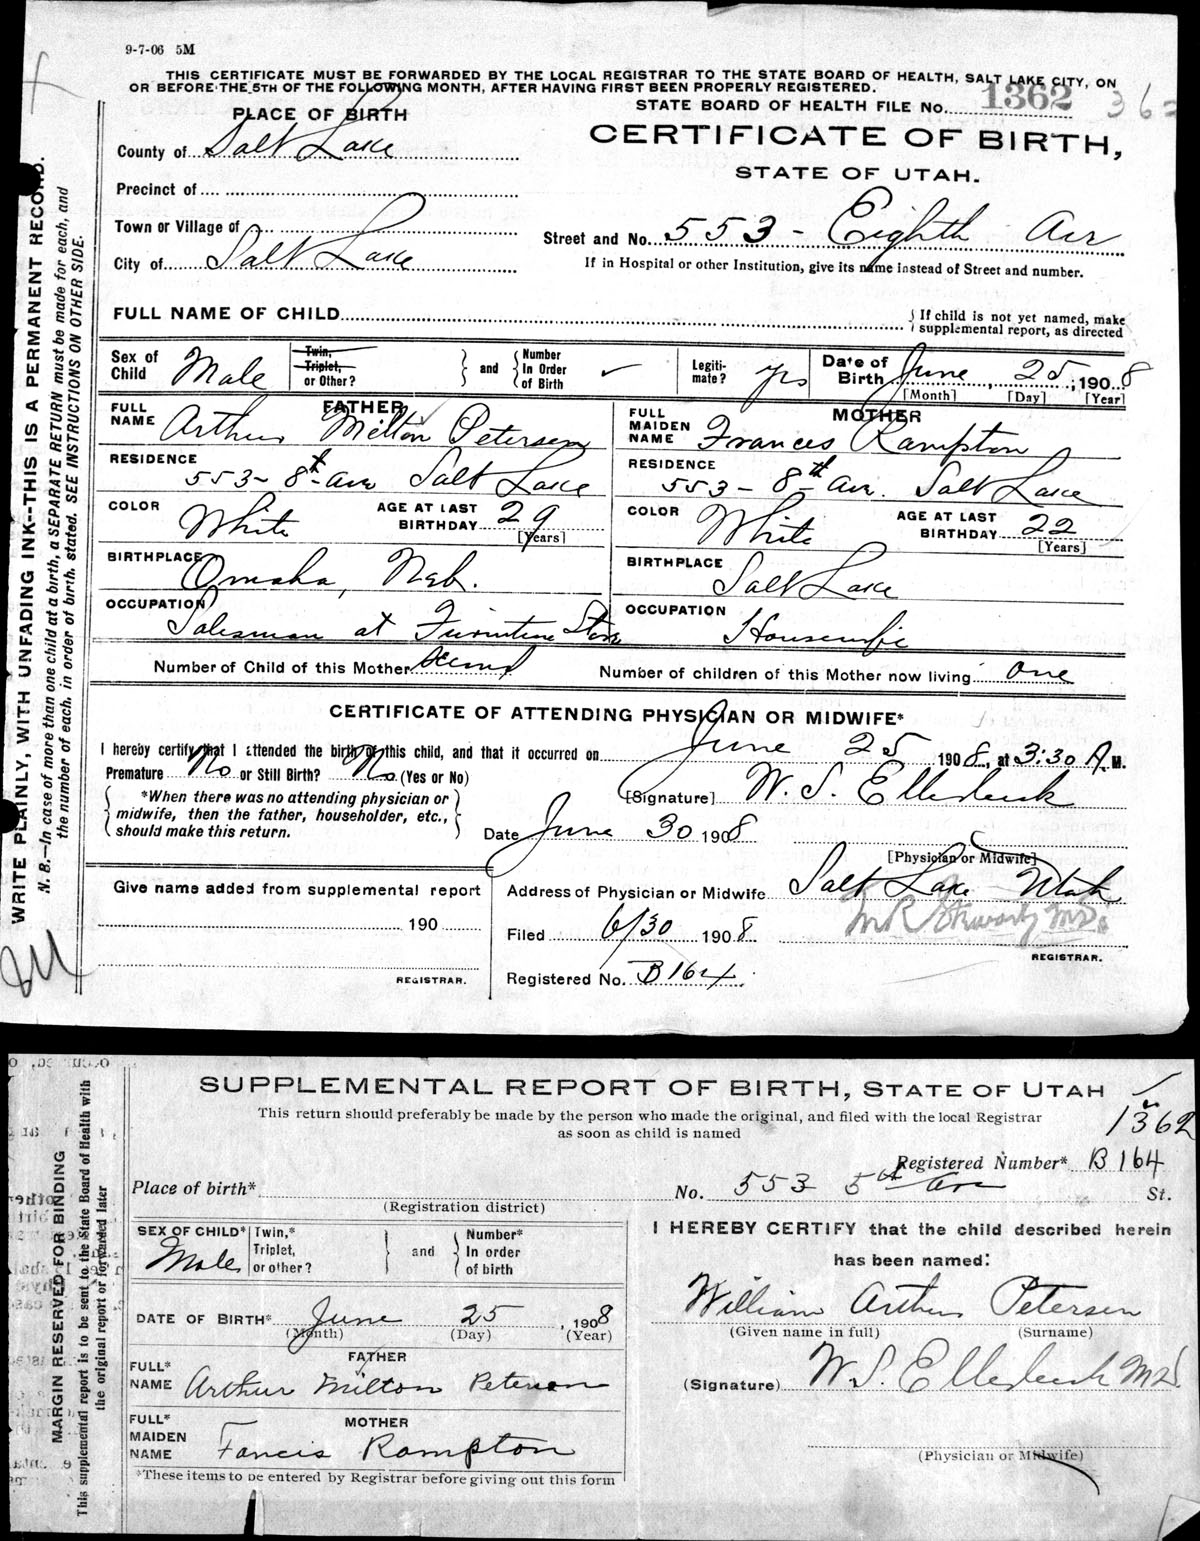 9-7-06 5M
THIS CERTIFICATE MUST BE FORWARDED BY THE LOCAL REGISTRAR TO THE STATE BOARD OF HEALTH, SALT LAKE CITY, ON
OR BEFORE THE 5TH OF THE FOLLOWING MONTH, AFTER HAVING FIRST BEEN PROPERLY REGISTERED.
STATE BOARD OF HEALTH FILE No. 1362
PLACE OF BIRTH
CERTIFICATE OF BIRTH,
STATE OF UTAH.
County of Salt Lake
Precinct of
Town or Village of
City of Salt Lake
Street and No. 553 - Eighth Ave
If in Hospital or other Institution, give its name instead of Street and number.
FULL NAME OF CHILD
If child is not yet named, make
supplemental report, as directed
Sex of Child Male
Twin, Triplet, or Other?
and
Number In Order of Birth ✓
Legitimate? yes
Date of Birth June 25, 1908
[Month] [Day] [Year]
FATHER
FULL NAME Arthur Milton Petersen
RESIDENCE 553 - 8th Ave Salt Lake
COLOR White AGE AT LAST BIRTHDAY 29
[Years]
BIRTHPLACE Omaha, Neb.
OCCUPATION Salesman at Furniture Store
MOTHER
FULL MAIDEN NAME Frances Rampton
RESIDENCE 553 - 8th Ave. Salt Lake
COLOR White AGE AT LAST BIRTHDAY 22
[Years]
BIRTHPLACE Salt Lake
OCCUPATION Housewife
Number of Child of this Mother second Number of children of this Mother now living one
CERTIFICATE OF ATTENDING PHYSICIAN OR MIDWIFE*
I hereby certify that I attended the birth of this child, and that it occurred on June 25 1908, at 3:30 A.M.
Premature No or Still Birth? No (Yes or No)
*When there was no attending physician or
midwife, then the father, householder, etc.,
should make this return.
[Signature] W. S. Ellerbeck
Date June 30 1908
[Physician or Midwife]
Address of Physician or Midwife Salt Lake Utah
Filed 6/30 1908
REGISTRAR.
Registered No. B 164
Give name added from supplemental report
190
REGISTRAR.
WRITE PLAINLY, WITH UNFADING INK--THIS IS A PERMANENT RECORD.
N. B.—In case of more than one child at a birth, a SEPARATE RETURN must be made for each, and
the number of each, in order of birth, stated. SEE INSTRUCTIONS ON OTHER SIDE.
SUPPLEMENTAL REPORT OF BIRTH, STATE OF UTAH
This return should preferably be made by the person who made the original, and filed with the local Registrar
as soon as child is named
1362
Registered Number* B 164
Place of birth*
(Registration district)
No. 553 5th Ave St.
SEX OF CHILD* Male
Twin,* Triplet, or other?
and
Number* In order of birth
DATE OF BIRTH* June 25, 1908
(Month) (Day) (Year)
FATHER
FULL* NAME Arthur Milton Petersen
MOTHER
FULL* MAIDEN NAME Francis Rampton
*These items to be entered by Registrar before giving out this form
I HEREBY CERTIFY that the child described herein
has been named:
William Arthur Petersen
(Given name in full) (Surname)
(Signature) W. S. Ellerbeck MD
(Physician or Midwife)
MARGIN RESERVED FOR BINDING
This supplemental report is to be sent to the State Board of Health with
the original report or forwarded later